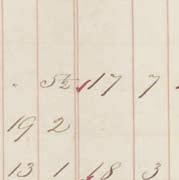 . 5½ 17 7 .
19 2
13 1 18 3